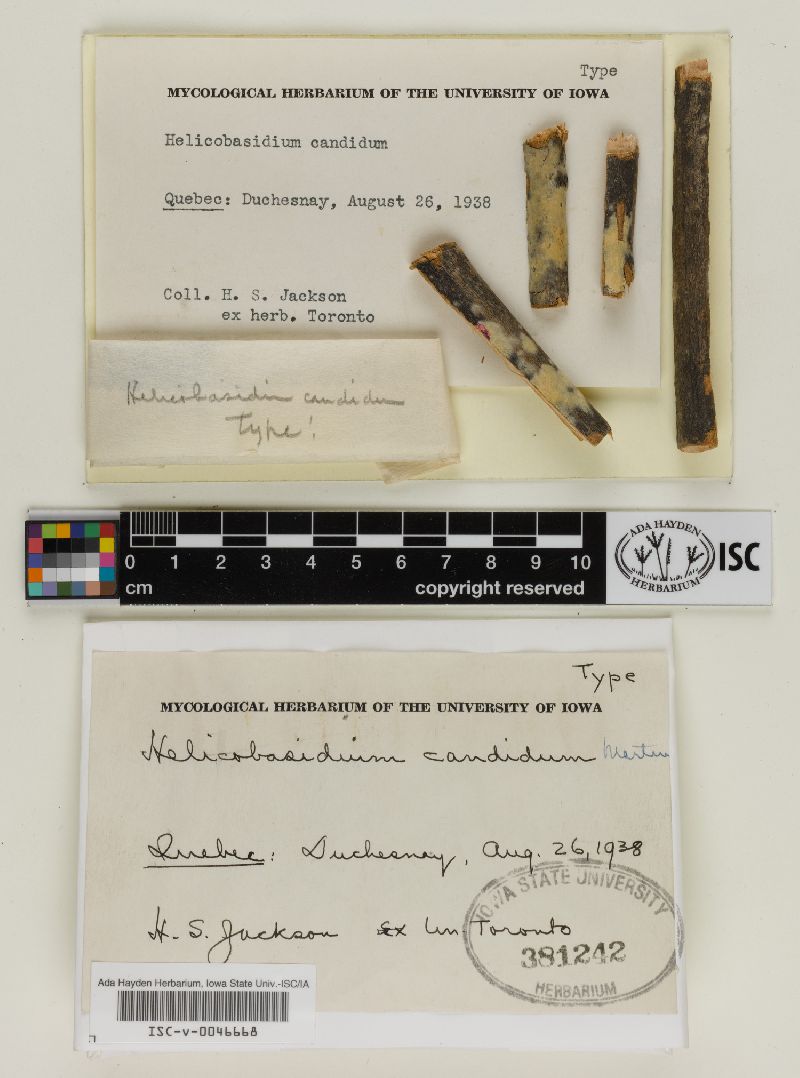 Type
MYCOLOGICAL HERBARIUM OF THE UNIVERSITY OF IOWA
Helicobasidium candidum
Quebec: Duchesnay, August 26, 1938
Coll. H. S. Jackson
ex herb. Toronto
Helicobasidium candidum
Type!
0 1 2 3 4 5 6 7 8 9 10
cm
copyright reserved
ADA HAYDEN
HERBARIUM
ISC
Type
MYCOLOGICAL HERBARIUM OF THE UNIVERSITY OF IOWA
Helicobasidium candidum Martin
Quebec: Duchesnay, Aug. 26, 1938
H. S. Jackson Ex Un Toronto
IOWA STATE UNIVERSITY
381242
HERBARIUM
Ada Hayden Herbarium, Iowa State Univ.-ISC/IA
ISC-v-0046668